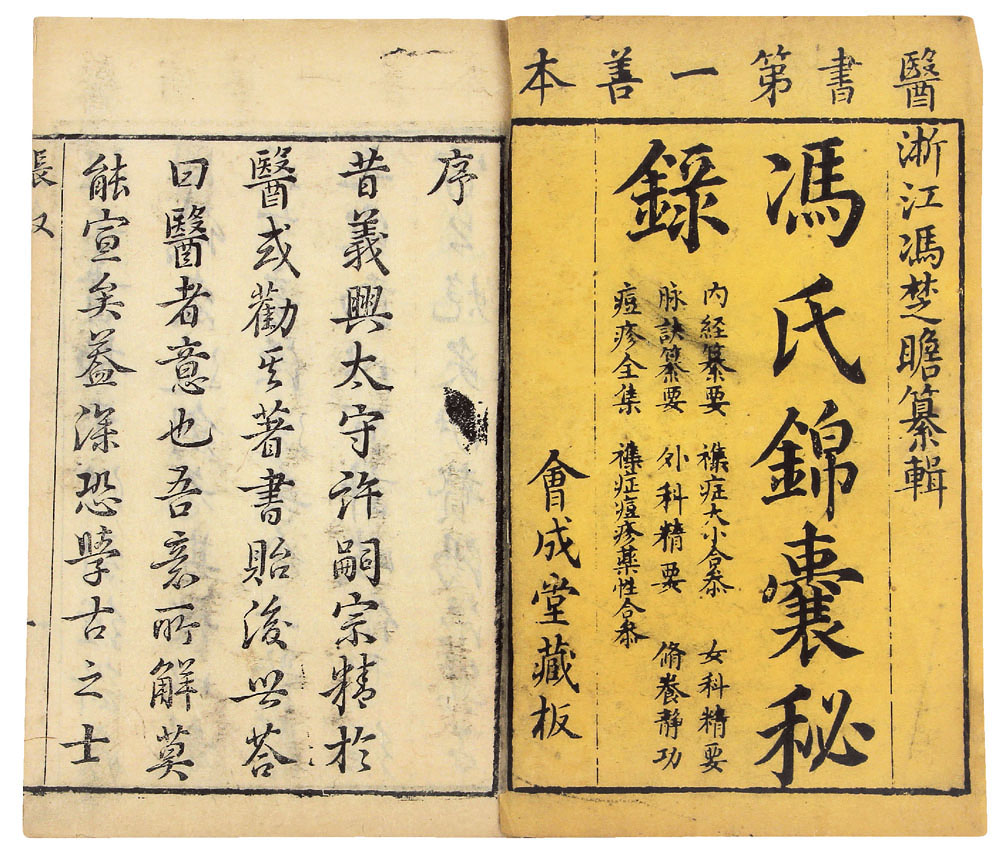 醫書第一善本
浙江馮楚瞻纂輯
馮氏錦囊秘
錄
內經纂要　襍症大小合叅　女科精要
脉訣纂要　外科精要　脩養靜功
痘疹全集　襍症痘疹藥性合叅
會成堂藏板
序
昔義興太守許嗣宗精於
醫或勸其著書貽後世荅
曰醫者意也吾意所解莫
能宣矣葢深恐學古之士